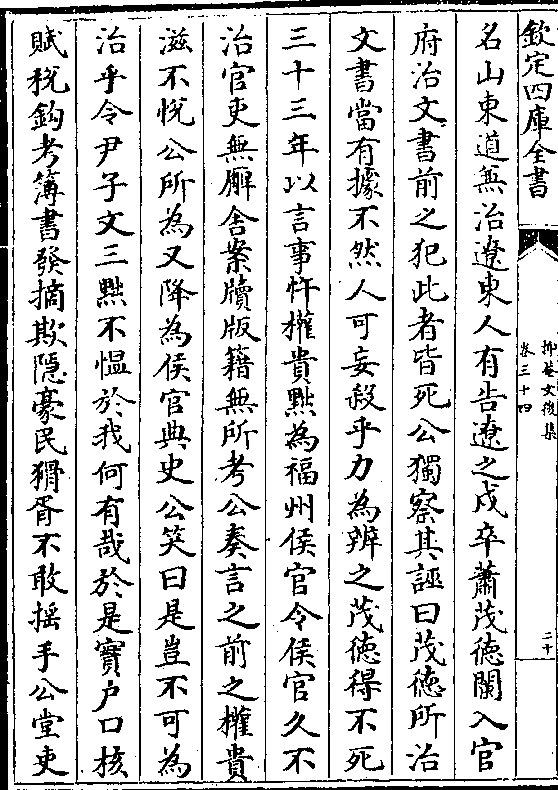 欽定四庫全書
抑菴文後集
卷三十四
二十
名山東道無治遼東人有告遼之戍卒蕭茂徳闌入官
府治文書前之犯此者皆死公獨察其誣曰茂徳所治
文書當有據不然人可妄殺乎力為辨之茂徳得不死
三十三年以言事忤權貴黜為福州侯官令侯官久不
治官吏無廨舍案牘版籍無所考公奏言之前之權貴
滋不悅公所為又降為侯官典史公笑曰是豈不可為
治乎令尹子文三黜不愠於我何有哉於是實户口核
賦稅鈎考簿書發摘欺隱豪民猾胥不敢揺手公堂吏